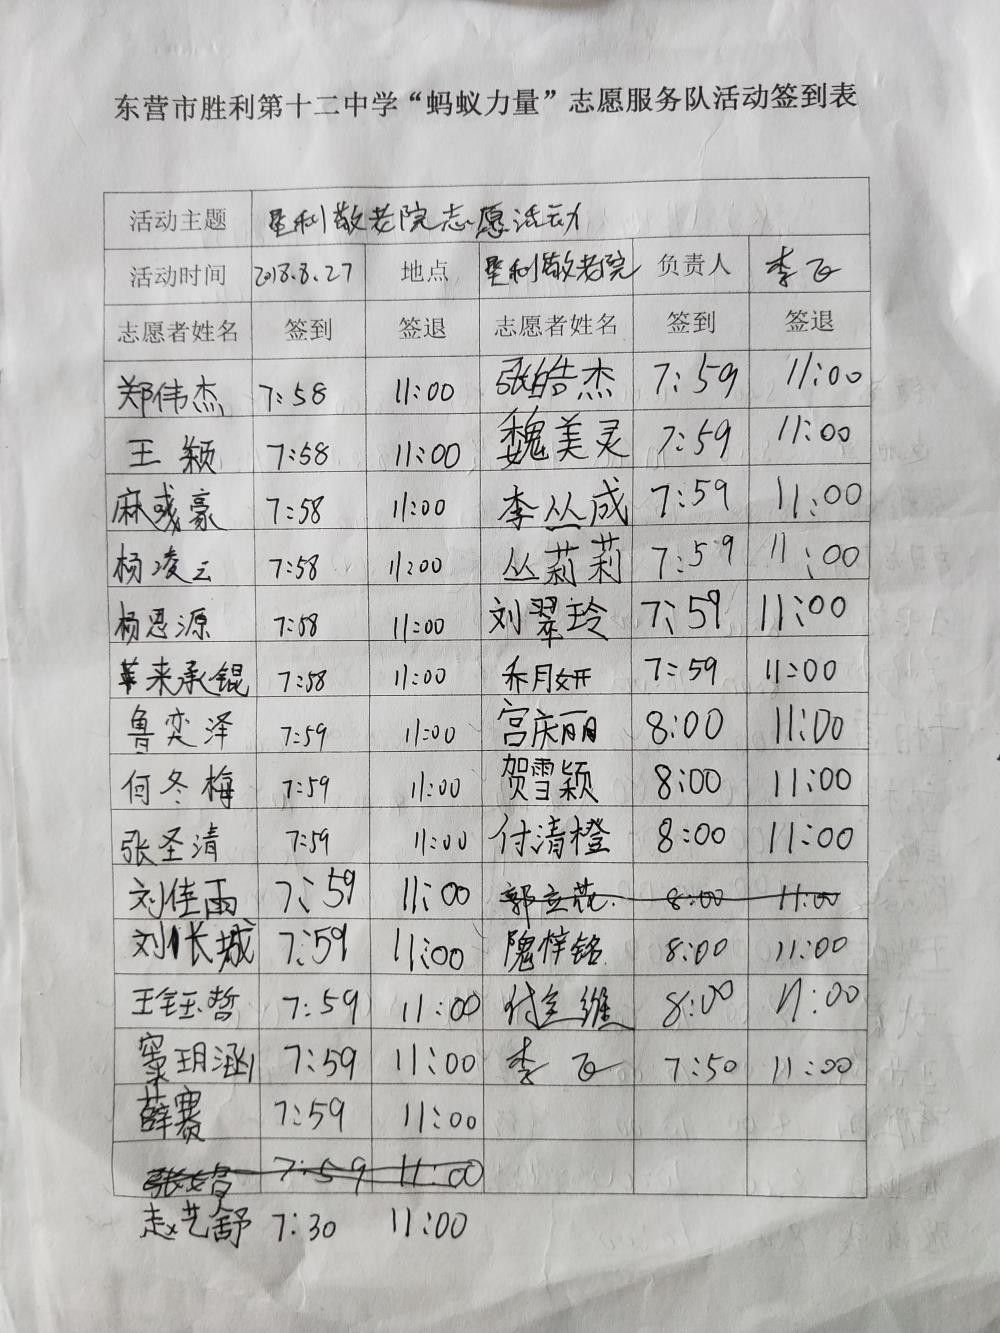 东营市胜利第十二中学“蚂蚁力量”志愿服务队活动签到表
活动主题 垦利敬老院志愿活动
活动时间 2018.8.27 地点 垦利敬老院 负责人 李飞
志愿者姓名 签到 签退 志愿者姓名 签到 签退
郑伟杰 7:58 11:00 张皓杰 7:59 11:00
王颖 7:58 11:00 魏美灵 7:59 11:00
麻彧豪 7:58 11:00 李丛成 7:59 11:00
杨凌云 7:58 11:00 丛莉莉 7:59 11:00
杨恩源 7:58 11:00 刘翠玲 7:59 11:00
来承锟 7:58 11:00 乔月妍 7:59 11:00
鲁奕泽 7:59 11:00 宫庆丽 8:00 11:00
何冬梅 7:59 11:00 贺雪颖 8:00 11:00
张圣清 7:59 11:00 付清橙 8:00 11:00
刘佳雨 7:59 11:00 郭立花 8:00 11:00
刘长城 7:59 11:00 隗梓铭 8:00 11:00
王钰哲 7:59 11:00 付维 8:00 11:00
窦玥涵 7:59 11:00 李飞 7:50 11:00
薛赛 7:59 11:00
7:59 11:00
赵艺舒 7:30 11:00